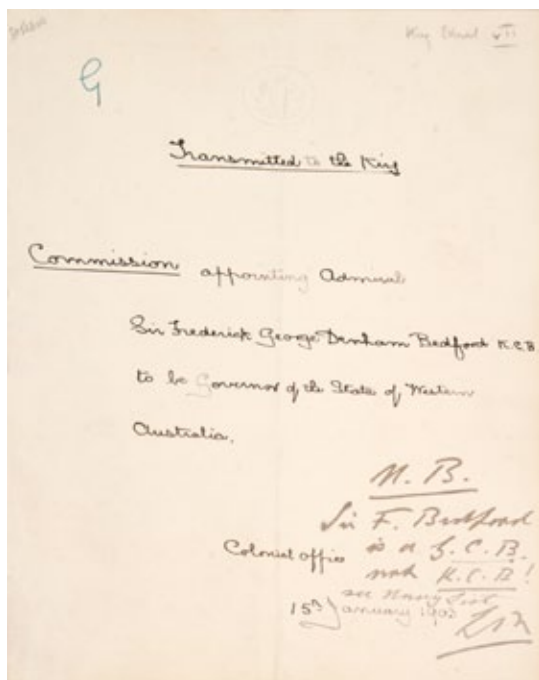 King Edward VII
G
Transmitted to the King
Commission appointing Admiral
Sir Frederick George Denham Bedford K.C.B.
to be Governor of the State of Western
Australia.
N.B.
Sir F. Bedford
is a G.C.B.
not K.C.B!
see Navy List
Colonial office
15th January 1903